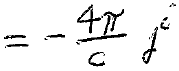 = - \frac{4\pi}{c} j^i